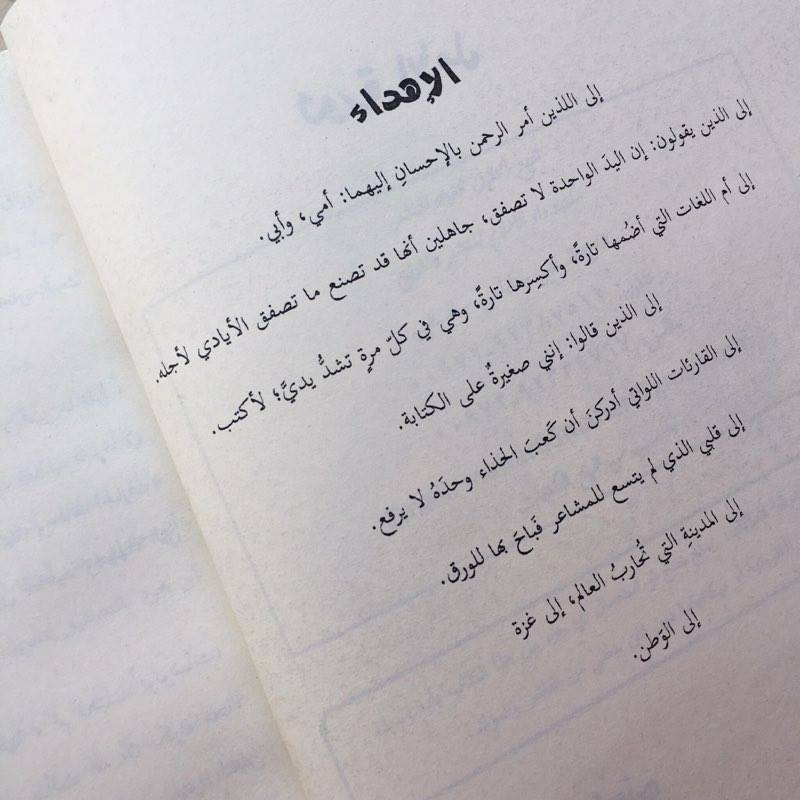 الإهداء
إلى اللذين أمر الرحمن بالإحسانِ إليهما: أمي، وأبي.
إلى الذين يقولون: إن اليدَ الواحدة لا تصفق، جاهلين أنها قد تصنع ما تصفق الأيادي لأجله.
إلى أم اللغات التي أضُمها تارةً، وأكسِرها تارةً، وهي في كلّ مرةٍ تشدُّ يديَّ؛ لأكتب.
إلى الذين قالوا: إنني صغيرةٌ على الكتابة.
إلى القارئات اللواتي أدركنَ أن كَعبَ الحذاء وحدَهُ لا يرفع.
إلى قلبي الذي لم يتسع للمشاعر فَباحَ بها للورق.
إلى المدينةِ التي تُحاربُ العالم، إلى غزة
إلى الوَطن.